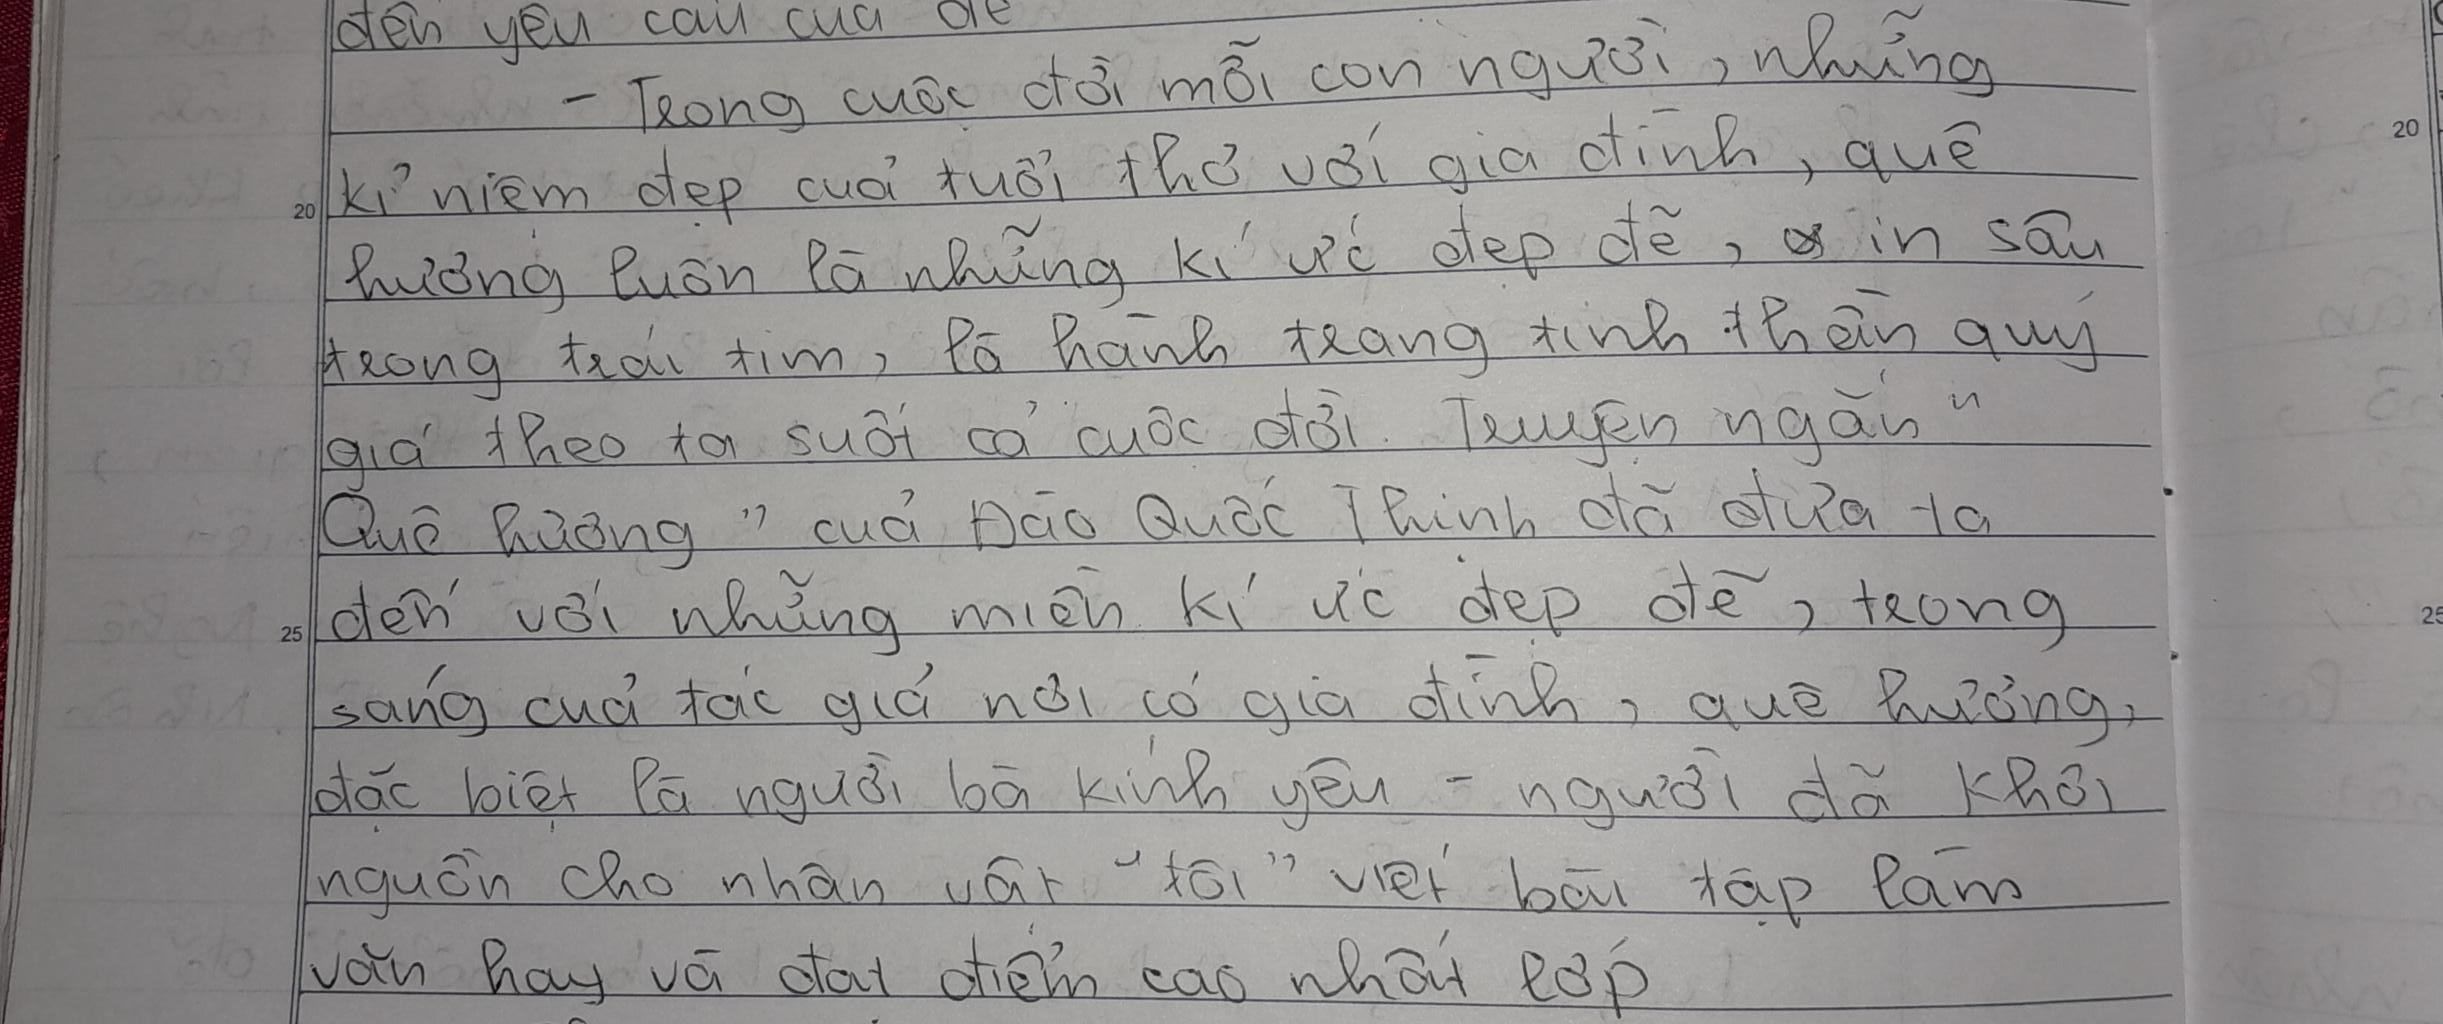 đến yêu cầu của đề
- Trong cuộc đời mỗi con người, những
kỉ niệm đẹp của tuổi thơ với gia đình, quê
hương luôn là những kí ức đẹp đẽ, in sâu
trong trái tim, là hành trang tinh thần quý
giá theo ta suốt cả cuộc đời. Truyện ngắn "
Quê hương" của Đào Quốc Thịnh đã đưa ta
đến với những miền kí ức đẹp đẽ, trong
sáng của tác giả nơi có gia đình, quê hương,
đặc biệt là người bà kính yêu - người đã khơi
nguồn cho nhân vật "tôi" viết bài tập làm
văn hay và đạt điểm cao nhất lớp